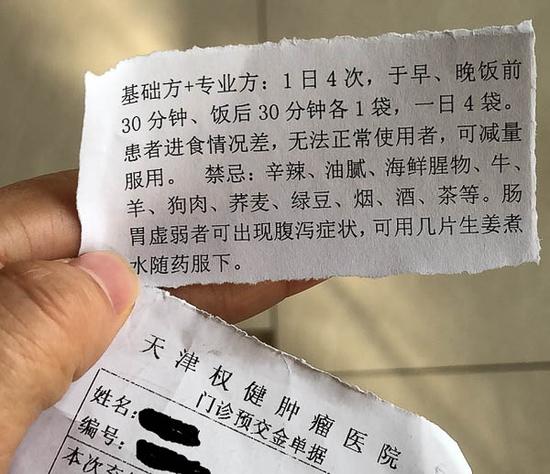 基础方+专业方：1日4次，于早、晚饭前
30分钟、饭后30分钟各1袋，一日4袋。
患者进食情况差，无法正常使用者，可减量
服用。 禁忌：辛辣、油腻、海鲜腥物、牛、
羊、狗肉、荞麦、绿豆、烟、酒、茶等。肠
胃虚弱者可出现腹泻症状，可用几片生姜煮
水随药服下。
天津权健肿瘤医院
门诊预交金单据
姓名：
编号：
本次